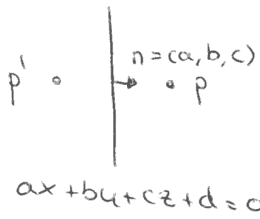 n = (a, b, c)
p' p
ax + by + cz + d = 0